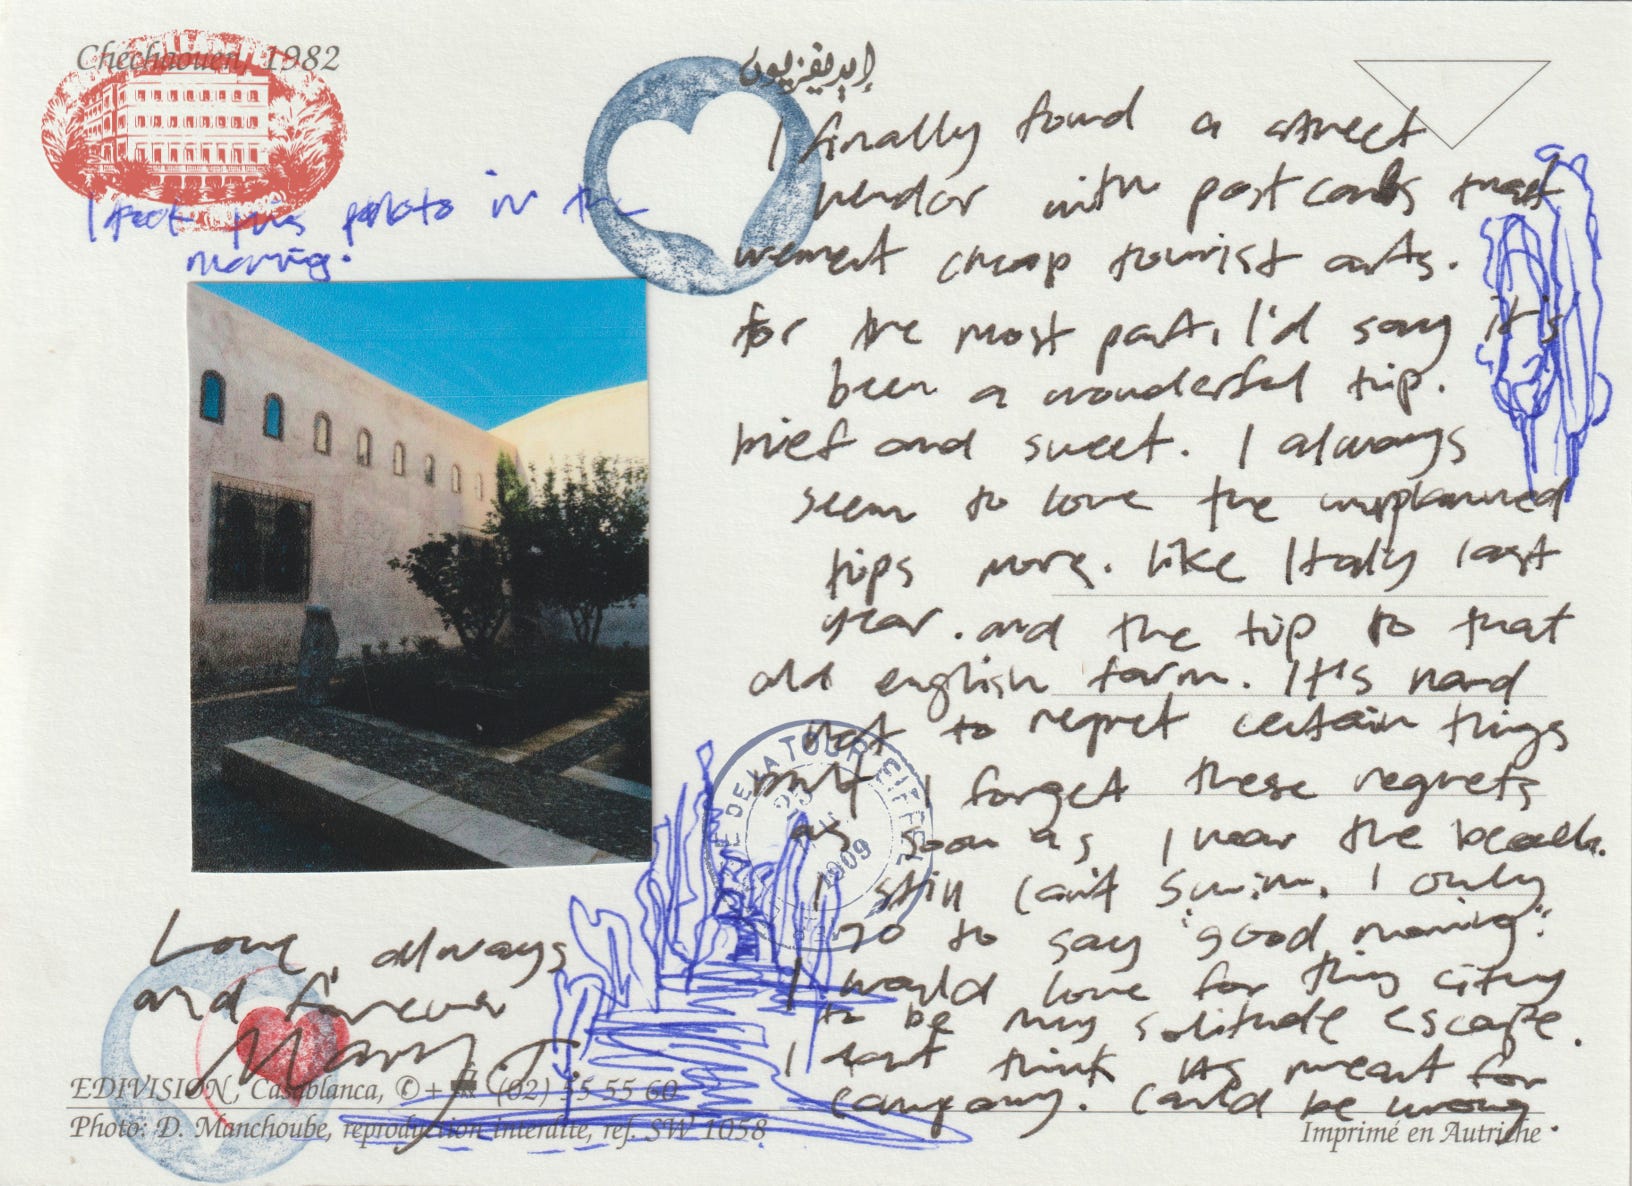 Chechaouen, 1982
إيديفزيون
I took this photo in the
morning.
I finally found a street
vendor with postcards that
weren't cheap tourist arts.
for the most part, I'd say it's
been a wonderful trip.
brief and sweet. I always
seem to love the unplanned
trips more. like Italy last
year. and the trip to that
old english farm. It's hard
not to regret certain things
but I forget these regrets
as soon as I near the beach.
I still can't swim, I only
go to say "good morning".
I would love for this city
to be my solitude escape.
I dont think its meant for
company. Could be wrong.
DE LA TOUR EIFFEL
25
1909
Love, always
and forever
Mary. J.
EDIVISION, Casablanca, © + (02) 55 55 60
Photo: D. Manchoube, reproduction interdite, ref. SW 1058
Imprimé en Autriche